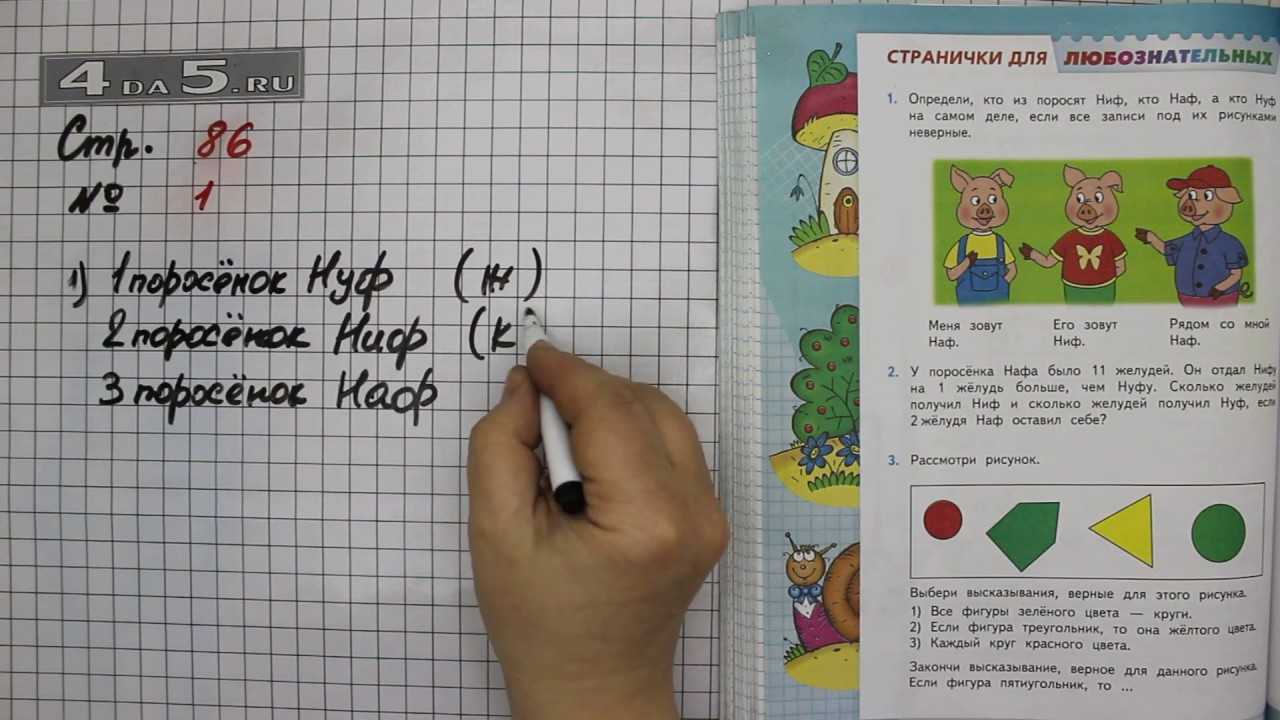 4DA5.RU
Стр. 86
№ 1
1) 1 поросёнок Нуф (ж)
2 поросёнок Ниф (к
3 поросёнок Наф
СТРАНИЧКИ ДЛЯ ЛЮБОЗНАТЕЛЬНЫХ
1. Определи, кто из поросят Ниф, кто Наф, а кто Нуф
на самом деле, если все записи под их рисунками
неверные.
Меня зовут
Наф.
Его зовут
Ниф.
Рядом со мной
Наф.
2. У поросёнка Нафа было 11 желудей. Он отдал Нифу
на 1 жёлудь больше, чем Нуфу. Сколько желудей
получил Ниф и сколько желудей получил Нуф, если
2 жёлудя Наф оставил себе?
3. Рассмотри рисунок.
Выбери высказывания, верные для этого рисунка.
1) Все фигуры зелёного цвета — круги.
2) Если фигура треугольник, то она жёлтого цвета.
3) Каждый круг красного цвета.
Закончи высказывание, верное для данного рисунка.
Если фигура пятиугольник, то ...